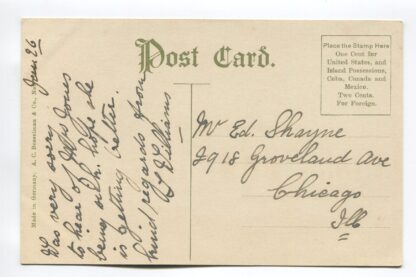 Post Card.
Place the Stamp Here
One Cent for
United States, and
Island Possessions,
Cuba, Canada and
Mexico.
Two Cents.
For Foreign.
Made in Germany. A. C. Bosselman & Co., N
June 26
Was very sorry
to hear of Miss Jones
being sick. hope she
is getting better.
kind regards from
Williams
Mr Ed. Shayne
2918 Groveland Ave
Chicago
Ill